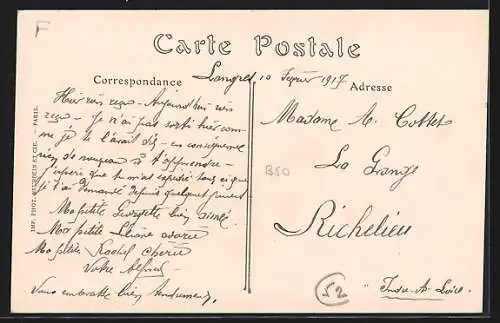 F
Carte Postale
Correspondance
Langres, 10 Février 1917
Adresse
Hier rien reçu - Aujourd'hui rien
reçu - Je n'ai pas sorti hier com-
me je te l'avait dis - en conséquence
rien de nouveau à t'apprendre -
J'espère que tu m'as expédié
j t'ai demandé depuis quelques jours
Ma petite Georgette bien aimée
Ma petite Liliane adorée
Ma petite Rachel chérie
Votre Alfred
Vous embrasse bien tendrement.
Madame A. Cottet
La Grange
Richelieu
Indre-et-Loire
B50
52
IMP. PHOT. NEURDEIN ET CIE. — PARIS.